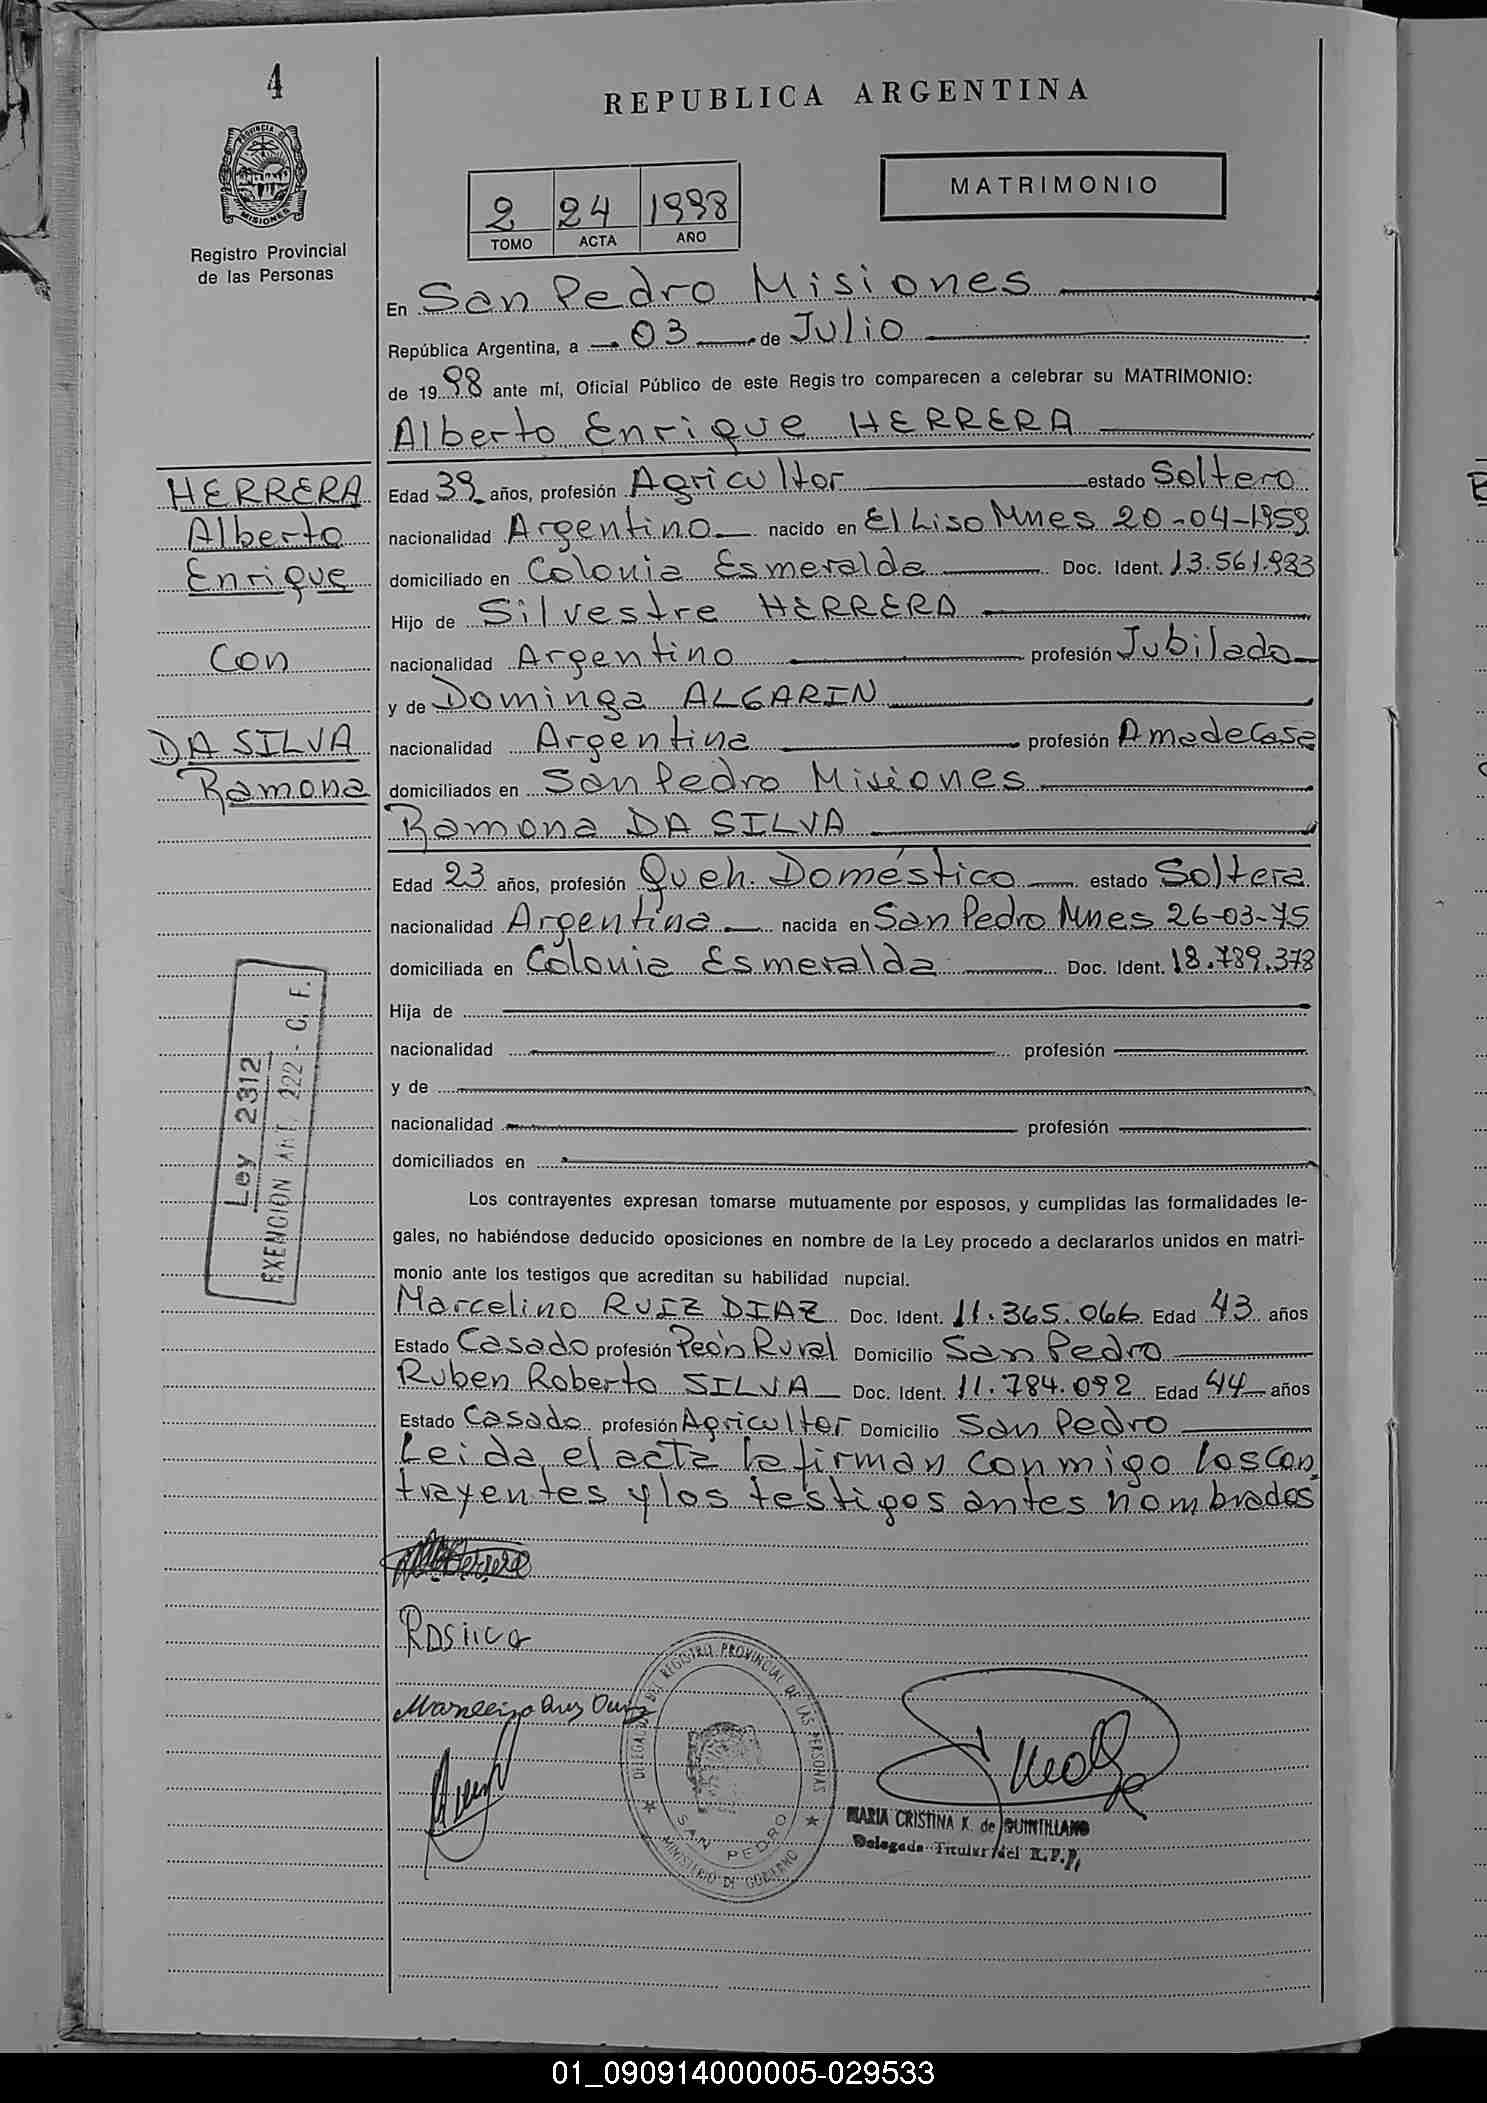 4
PROVINCIA DE
MISIONES
Registro Provincial
de las Personas
REPUBLICA ARGENTINA
MATRIMONIO
2 24 1998
TOMO ACTA AÑO
En San Pedro Misiones
República Argentina, a 03 de Julio
de 19 98 ante mí, Oficial Público de este Registro comparecen a celebrar su MATRIMONIO:
Alberto Enrique HERRERA
HERRERA
Alberto
Enrique
Con
DA SILVA
Ramona
Edad 39 años, profesión Agricultor estado Soltero
nacionalidad Argentino nacido en El Liso Mnes 20-04-1959
domiciliado en Colonia Esmeralda Doc. Ident. 13.561.983
Hijo de Silvestre HERRERA
nacionalidad Argentino profesión Jubilado
y de Dominga ALGARIN
nacionalidad Argentina profesión Ama de Casa
domiciliados en San Pedro Misiones
Ramona DA SILVA
Edad 23 años, profesión Queh. Doméstico estado Soltera
nacionalidad Argentina nacida en San Pedro Mnes 26-03-75
domiciliada en Colonia Esmeralda Doc. Ident. 18.789.378
Hija de
nacionalidad profesión
y de
nacionalidad profesión
domiciliados en
Ley 2312
EXENCION ART. 222 - C. F.
Los contrayentes expresan tomarse mutuamente por esposos, y cumplidas las formalidades le-
gales, no habiéndose deducido oposiciones en nombre de la Ley procedo a declararlos unidos en matri-
monio ante los testigos que acreditan su habilidad nupcial.
Marcelino RUIZ DIAZ Doc. Ident. 11.365.066 Edad 43 años
Estado Casado profesión Peón Rural Domicilio San Pedro
Ruben Roberto SILVA Doc. Ident. 11.784.092 Edad 44 años
Estado Casado profesión Agricultor Domicilio San Pedro
Leida el acta la firman conmigo los con
trayentes y los testigos antes nombrados
Herrera
DELEGACION DEL REGISTRO PROVINCIAL DE LAS PERSONAS
SAN PEDRO
MINISTERIO DE GOBIERNO
MARIA CRISTINA K. de QUINTILLANO
Delegada Titular del R.P.P.
01_090914000005-029533